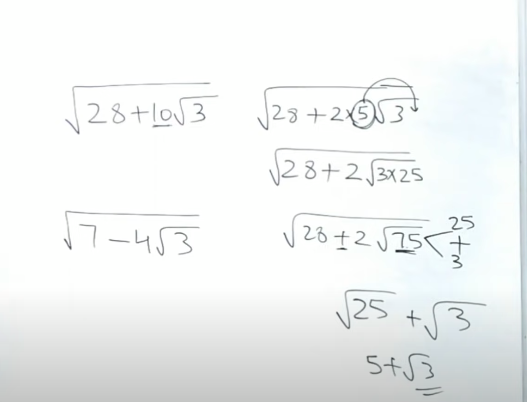 √(28+10√3)
√(28+2×5√3)
√(28+2√(3×25))
√(7-4√3)
√(28±2√75) < 25 + 3
√25 + √3
5+√3